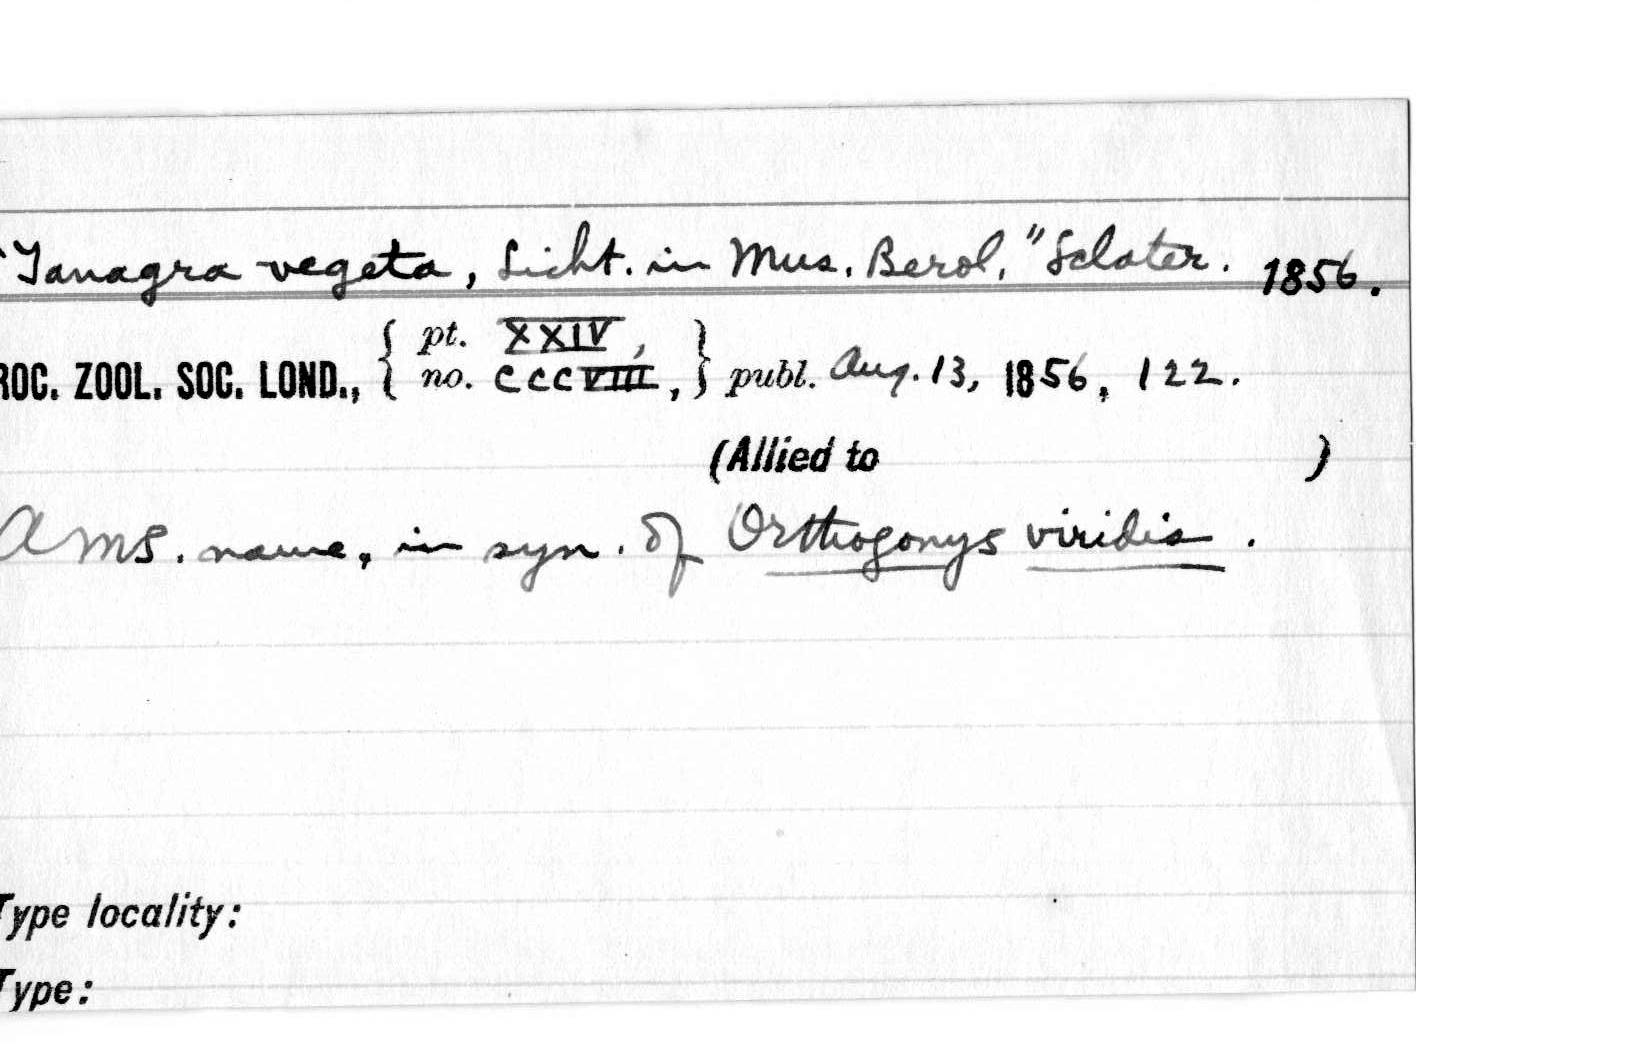 "Tanagra vegeta, Licht. in Mus. Berol." Sclater. 1856.
pt. XXIV,
ROC. ZOOL. SOC. LOND., { no. CCCVIII, } publ. Aug. 13, 1856, 122.
(Allied to )
A MS. name, in syn. of Orthogonys viridis.
Type locality:
Type: